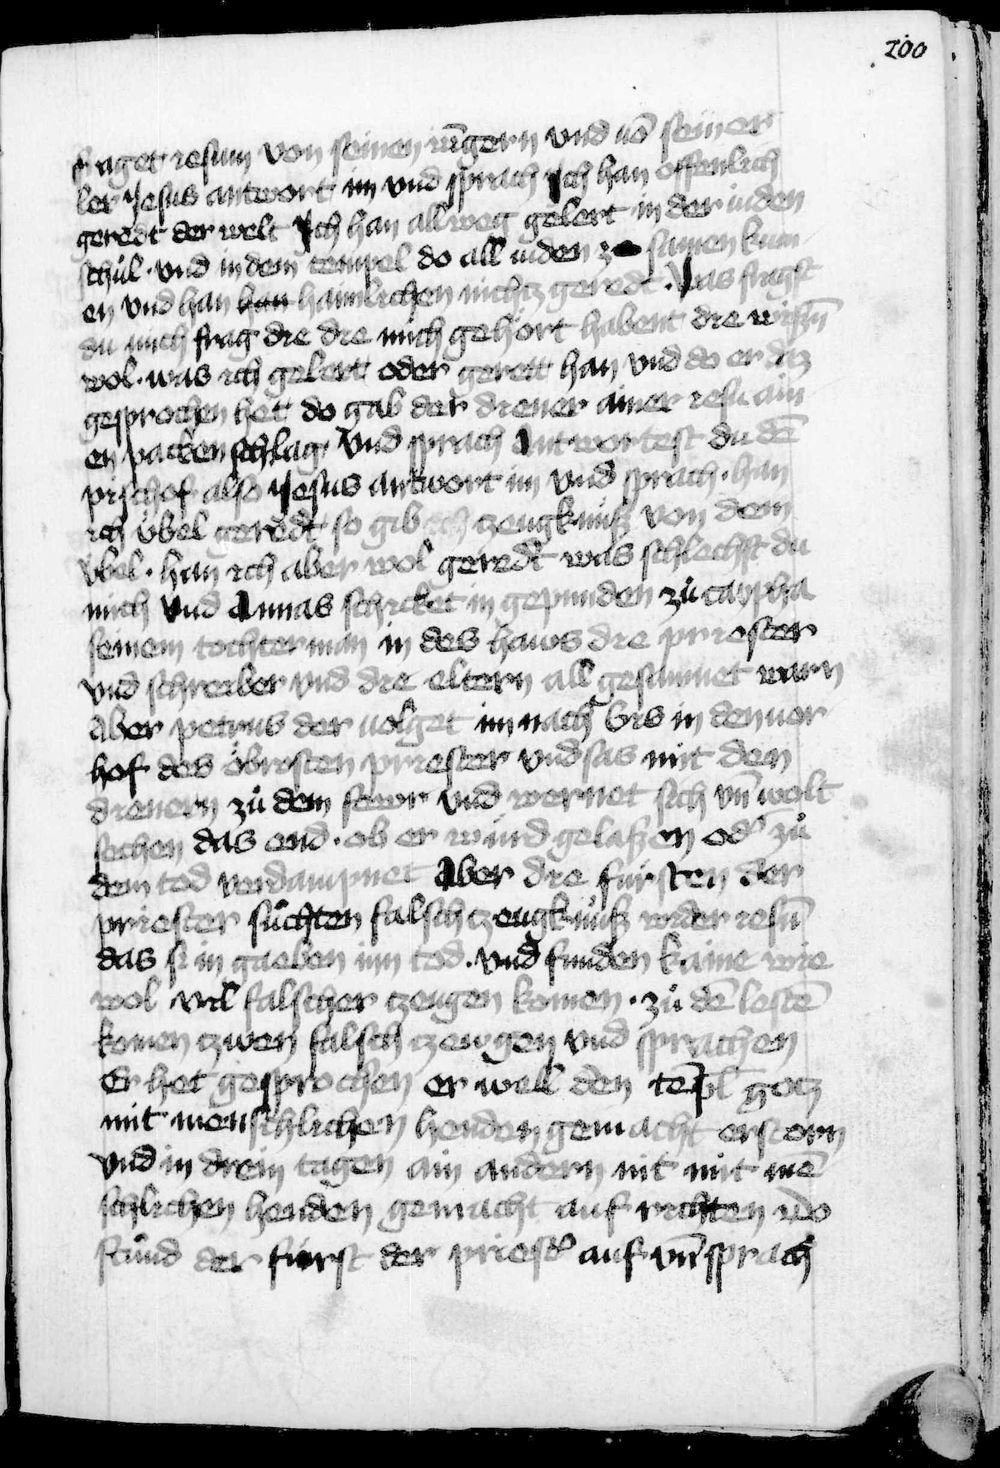 200
fraget iesum von seinen iu̅gern vnd vo̅ seiner
ler Jesus antwort im vnd sprach Ich han offenlich
geredt der welt Ich han allweg gelert in der iuden
schůl · vnd in dem tempel do all iuden zů samen kum
en vnd han hamlichen nichtz geredt · Was fragst
du mich frag die die mich gehört habent die wisse̅
wol · was ich gelert oder gerett han vnd do er ditz
gesprochen het do gab der diener ainer iesu ain
en packen schlag vnd sprach Antwortest du de̅
pischof also Jesus antwort im vnd sprach · han
ich übel geredt so gib tzeugknüß von dem
übel · han ich aber wol geredt was schlechst du
mich Vnd Annas schicket in gepunden zů caypha
seinem tochterman in des haws die priester
vnd schreiber vnd die eltern all gesamnet warn
Aber petrus der volget im nach bis in den vor
hof des obrosten priester vnd sas mit den
dienern zů dem fewr vnd wermet sich vn̅ wolt
sechen das end · ob er würd gelaßen od' zů
dem tod verdampnet Aber die fürsten der
priester sůchten falsch tzeugknüß wider iesu̅
das si in gaeben inn tod · vnd funden kaine wie
wol vil falscher tzeugen komen · zů de̅ leste̅
komen tzwen falsch tzewgen vnd sprachen
Er het gesprochen er well den te̅pl gotz
mit menschlichen henden gemacht erstorn
vnd in drein tagen ain andern nit mit me̅
schlichen henden gemacht auf richten vn̅ do
stůnd der fürst der priest' auf vn̅ sprach